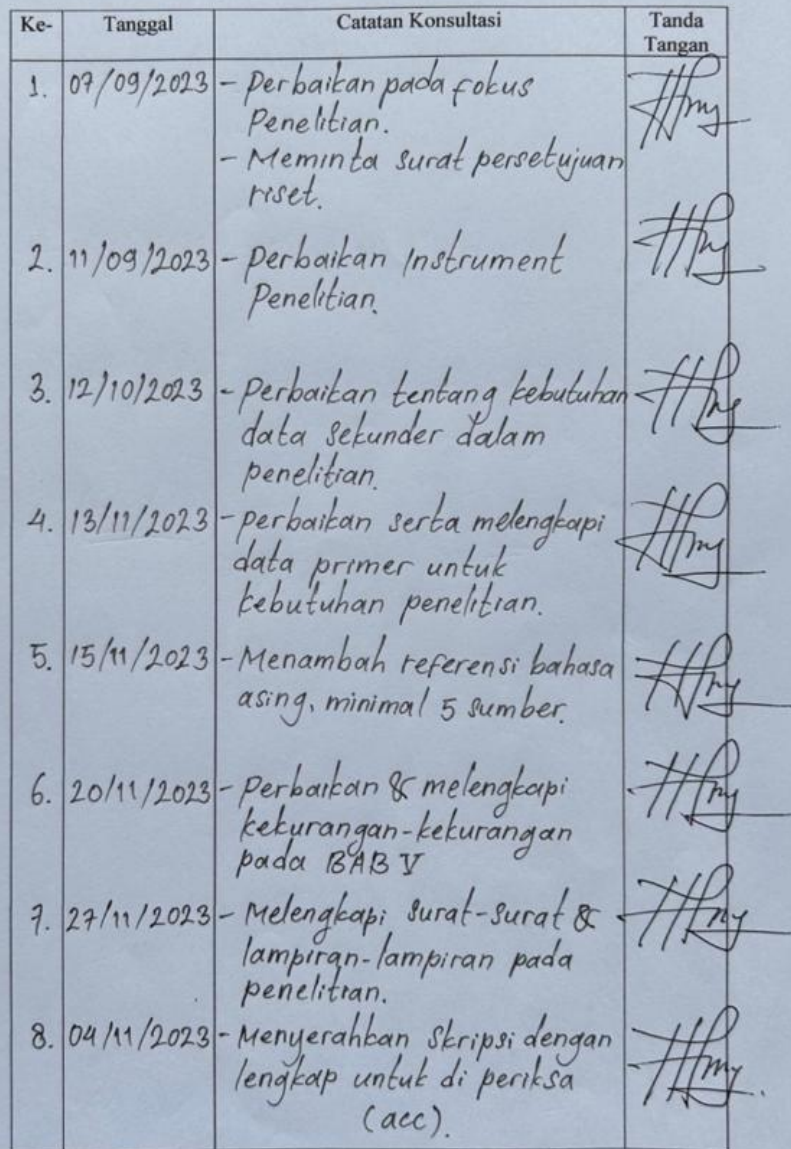 Ke- Tanggal Catatan Konsultasi Tanda
Tangan
1. 07/09/2023 - Perbaikan pada fokus
Penelitian.
- Meminta surat persetujuan
riset.
2. 11/09/2023 - Perbaikan Instrument
Penelitian.
3. 12/10/2023 - Perbaikan tentang kebutuhan
data sekunder dalam
penelitian.
4. 13/11/2023 - perbaikan serta melengkapi
data primer untuk
kebutuhan penelitian.
5. 15/11/2023 - Menambah referensi bahasa
asing, minimal 5 sumber.
6. 20/11/2023 - Perbaikan & melengkapi
kekurangan-kekurangan
pada BAB V
7. 27/11/2023 - Melengkapi surat-surat &
lampiran-lampiran pada
penelitian.
8. 04/11/2023 - Menyerahkan Skripsi dengan
lengkap untuk di periksa
(acc).